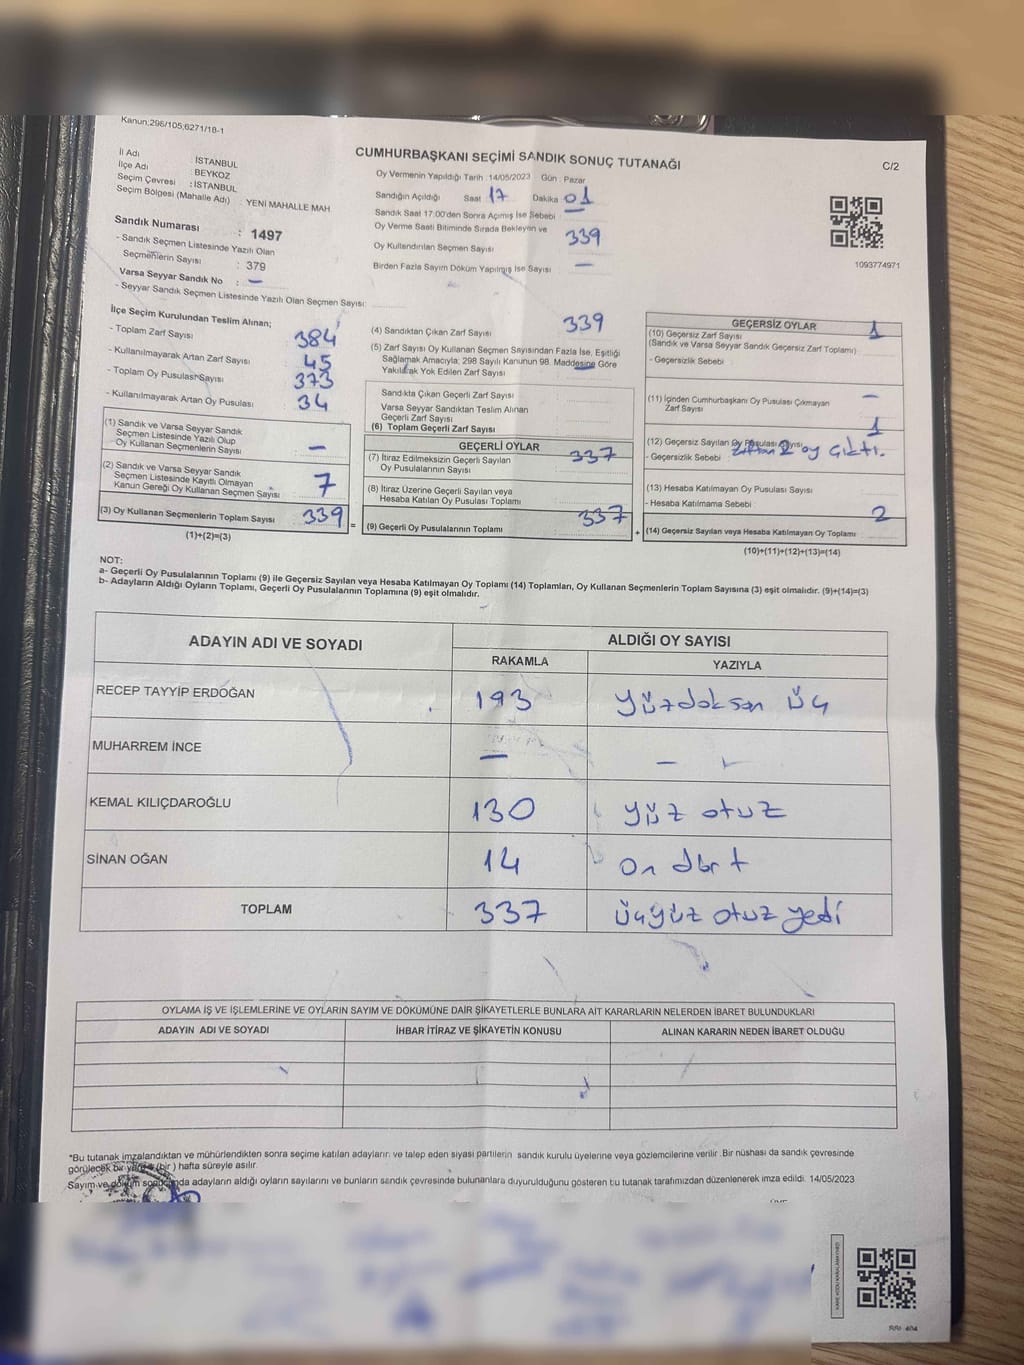 Kanun;296/105;6271/18-1
CUMHURBAŞKANI SEÇİMİ SANDIK SONUÇ TUTANAĞI
C/2
İl Adı : İSTANBUL
İlçe Adı : BEYKOZ
Seçim Çevresi : İSTANBUL
Seçim Bölgesi (Mahalle Adı) : YENİ MAHALLE MAH
Sandık Numarası : 1497
- Sandık Seçmen Listesinde Yazılı Olan
Seçmenlerin Sayısı : 379
Varsa Seyyar Sandık No : –
- Seyyar Sandık Seçmen Listesinde Yazılı Olan Seçmen Sayısı:
Oy Vermenin Yapıldığı Tarih :14/05/2023 Gün : Pazar
Sandığın Açıldığı Saat 17 Dakika 01
Sandık Saat 17:00'den Sonra Açımış İse Sebebi –
Oy Verme Saati Bitiminde Sırada Bekleyen ve
Oy Kullandırılan Seçmen Sayısı 339
Birden Fazla Sayım Döküm Yapılmış İse Sayısı –
1093774971
İlçe Seçim Kurulundan Teslim Alınan;
- Toplam Zarf Sayısı 384
- Kullanılmayarak Artan Zarf Sayısı 45
- Toplam Oy Pusulası Sayısı 373
- Kullanılmayarak Artan Oy Pusulası 34
(1) Sandık ve Varsa Seyyar Sandık
Seçmen Listesinde Yazılı Olup
Oy Kullanan Seçmenlerin Sayısı –
(2) Sandık ve Varsa Seyyar Sandık
Seçmen Listesinde Kayıtlı Olmayan
Kanun Gereği Oy Kullanan Seçmen Sayısı 7
(3) Oy Kullanan Seçmenlerin Toplam Sayısı 339
(1)+(2)=(3)
(4) Sandıktan Çıkan Zarf Sayısı 339
(5) Zarf Sayısı Oy Kullanan Seçmen Sayısından Fazla İse, Eşitliği
Sağlamak Amacıyla; 298 Sayılı Kanunun 98. Maddesine Göre
Yakılarak Yok Edilen Zarf Sayısı –
Sandıkta Çıkan Geçerli Zarf Sayısı
Varsa Seyyar Sandıktan Teslim Alınan
Geçerli Zarf Sayısı
(6) Toplam Geçerli Zarf Sayısı
GEÇERLİ OYLAR
(7) İtiraz Edilmeksizin Geçerli Sayılan
Oy Pusulalarının Sayısı 337
(8) İtiraz Üzerine Geçerli Sayılan veya
Hesaba Katılan Oy Pusulası Toplamı
= (9) Geçerli Oy Pusulalarının Toplamı 337
GEÇERSİZ OYLAR
(10) Geçersiz Zarf Sayısı 1
(Sandık ve Varsa Seyyar Sandık Geçersiz Zarf Toplamı)
- Geçersizlik Sebebi :
(11) İçinden Cumhurbaşkanı Oy Pusulası Çıkmayan
Zarf Sayısı –
(12) Geçersiz Sayılan Oy Pusulası Sayısı 1
- Geçersizlik Sebebi 2 oy çıktı.
(13) Hesaba Katılmayan Oy Pusulası Sayısı
- Hesaba Katılmama Sebebi
+ (14) Geçersiz Sayılan veya Hesaba Katılmayan Oy Toplamı 2
(10)+(11)+(12)+(13)=(14)
NOT:
a- Geçerli Oy Pusulalarının Toplamı (9) ile Geçersiz Sayılan veya Hesaba Katılmayan Oy Toplamı (14) Toplamları, Oy Kullanan Seçmenlerin Toplam Sayısına (3) eşit olmalıdır. (9)+(14)=(3)
b- Adayların Aldığı Oyların Toplamı, Geçerli Oy Pusulalarının Toplamına (9) eşit olmalıdır.
ADAYIN ADI VE SOYADI ALDIĞI OY SAYISI
RAKAMLA YAZIYLA
RECEP TAYYİP ERDOĞAN 193 yüzdoksan üç
MUHARREM İNCE – –
KEMAL KILIÇDAROĞLU 130 yüz otuz
SİNAN OĞAN 14 on dört
TOPLAM 337 üçyüz otuz yedi
OYLAMA İŞ VE İŞLEMLERİNE VE OYLARIN SAYIM VE DÖKÜMÜNE DAİR ŞİKAYETLERLE BUNLARA AİT KARARLARIN NELERDEN İBARET BULUNDUKLARI
ADAYIN ADI VE SOYADI İHBAR İTİRAZ VE ŞİKAYETİN KONUSU ALINAN KARARIN NEDEN İBARET OLDUĞU
*Bu tutanak imzalandıktan ve mühürlendikten sonra seçime katılan adayların ve talep eden siyasi partilerin sandık kurulu üyelerine veya gözlemcilerine verilir .Bir nüshası da sandık çevresinde
görülecek bir yere (bir ) hafta süreyle asılır.
Sayım ve döküm sonucunda adayların aldığı oyların sayılarını ve bunların sandık çevresinde bulunanlara duyurulduğunu gösteren bu tutanak tarafımızdan düzenlenerek imza edildi. 14/05/2023